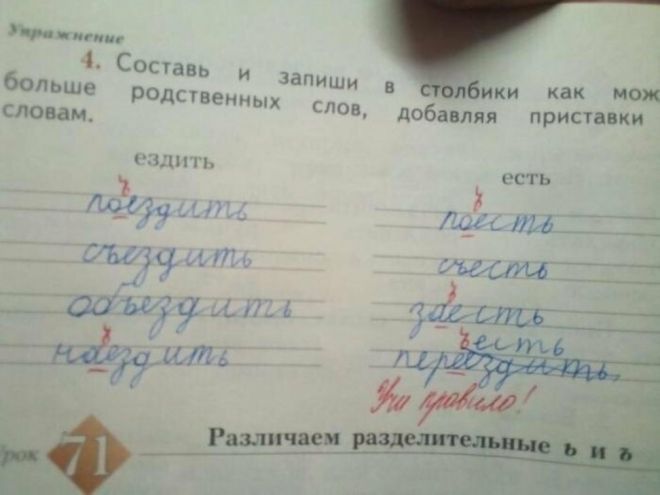 Упражнение
4. Составь и запиши в столбики как мож
больше родственных слов, добавляя приставки
словам.
ездить есть
ъ ъ
поездить поесть
съездить съесть
ъ ъ
объездить заесть
ъ ъесть
наездить переездить,
Учи правило!
Урок 71 Различаем разделительные ь и ъ